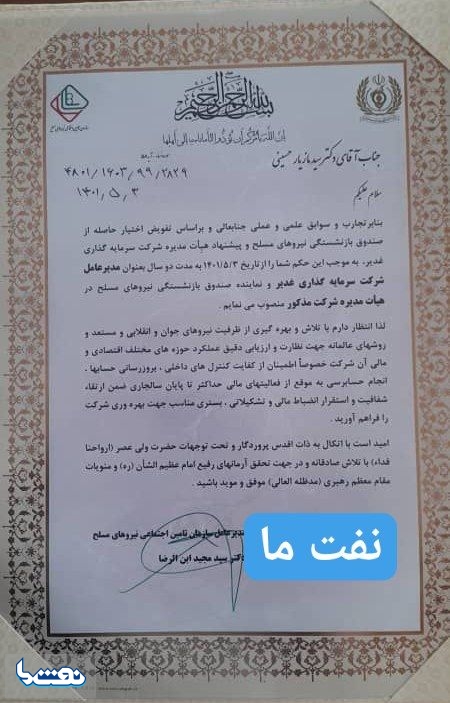 بسم الله الرحمن الرحیم
إن الله یأمرکم أن تؤدوا الأمانات إلی أهلها
جناب آقای دکتر سید مازیار حسینی
۴۸۰۱/۱۶۰۳/۹۹/۲۸۲۹
۱۴۰۱/۵/۳
سلام علیکم
بنابر تجارب و سوابق علمی و عملی جنابعالی و براساس تفویض اختیار حاصله از
صندوق بازنشستگی نیروهای مسلح و پیشنهاد هیأت مدیره شرکت سرمایه گذاری
غدیر، به موجب این حکم شما را از تاریخ ۱۴۰۱/۵/۳ به مدت دو سال بعنوان مدیرعامل
شرکت سرمایه گذاری غدیر و نماینده صندوق بازنشستگی نیروهای مسلح در
هیأت مدیره شرکت مذکور منصوب می نمایم .
لذا انتظار دارم با تلاش و بهره گیری از ظرفیت نیروهای جوان و انقلابی و مستعد و
روشهای عالمانه جهت نظارت و ارزیابی دقیق عملکرد حوزه های مختلف اقتصادی و
مالی آن شرکت خصوصاً اطمینان از کفایت کنترل های داخلی ، بروزرسانی حسابها ،
انجام حسابرسی به موقع از فعالیتهای مالی حداکثر تا پایان سالجاری ضمن ارتقاء
شفافیت و استقرار انضباط مالی و تشکیلاتی ، بستری مناسب جهت بهره وری شرکت
را فراهم آورید .
امید است با اتکال به ذات اقدس پروردگار و تحت توجهات حضرت ولی عصر (ارواحنا
فداه) با تلاش صادقانه و در جهت تحقق آرمانهای رفیع امام عظیم الشأن (ره) و منویات
مقام معظم رهبری (مدظله العالی) موفق و موید باشید .
مدیرعامل سازمان تامین اجتماعی نیروهای مسلح
دکتر سید مجید ابن الرضا
نفت ما
نفت ما